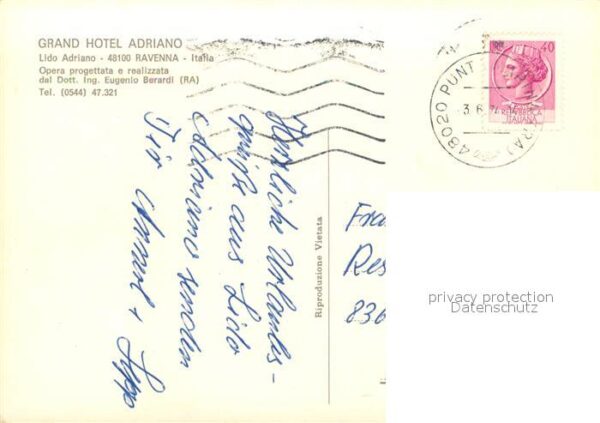 GRAND HOTEL ADRIANO
Lido Adriano - 48100 RAVENNA - Italia
Opera progettata e realizzata
dal Dott. Ing. Eugenio Berardi (RA)
Tel. (0544) 47.321
Herzliche Urlaubs-
grüße aus Lido
Adriano senden
Dir
+
Riproduzione Vietata
Fra
Res
836
40
48020 PUNT
3.6
REPUBBLICA
ITALIANA
privacy protection
Datenschutz